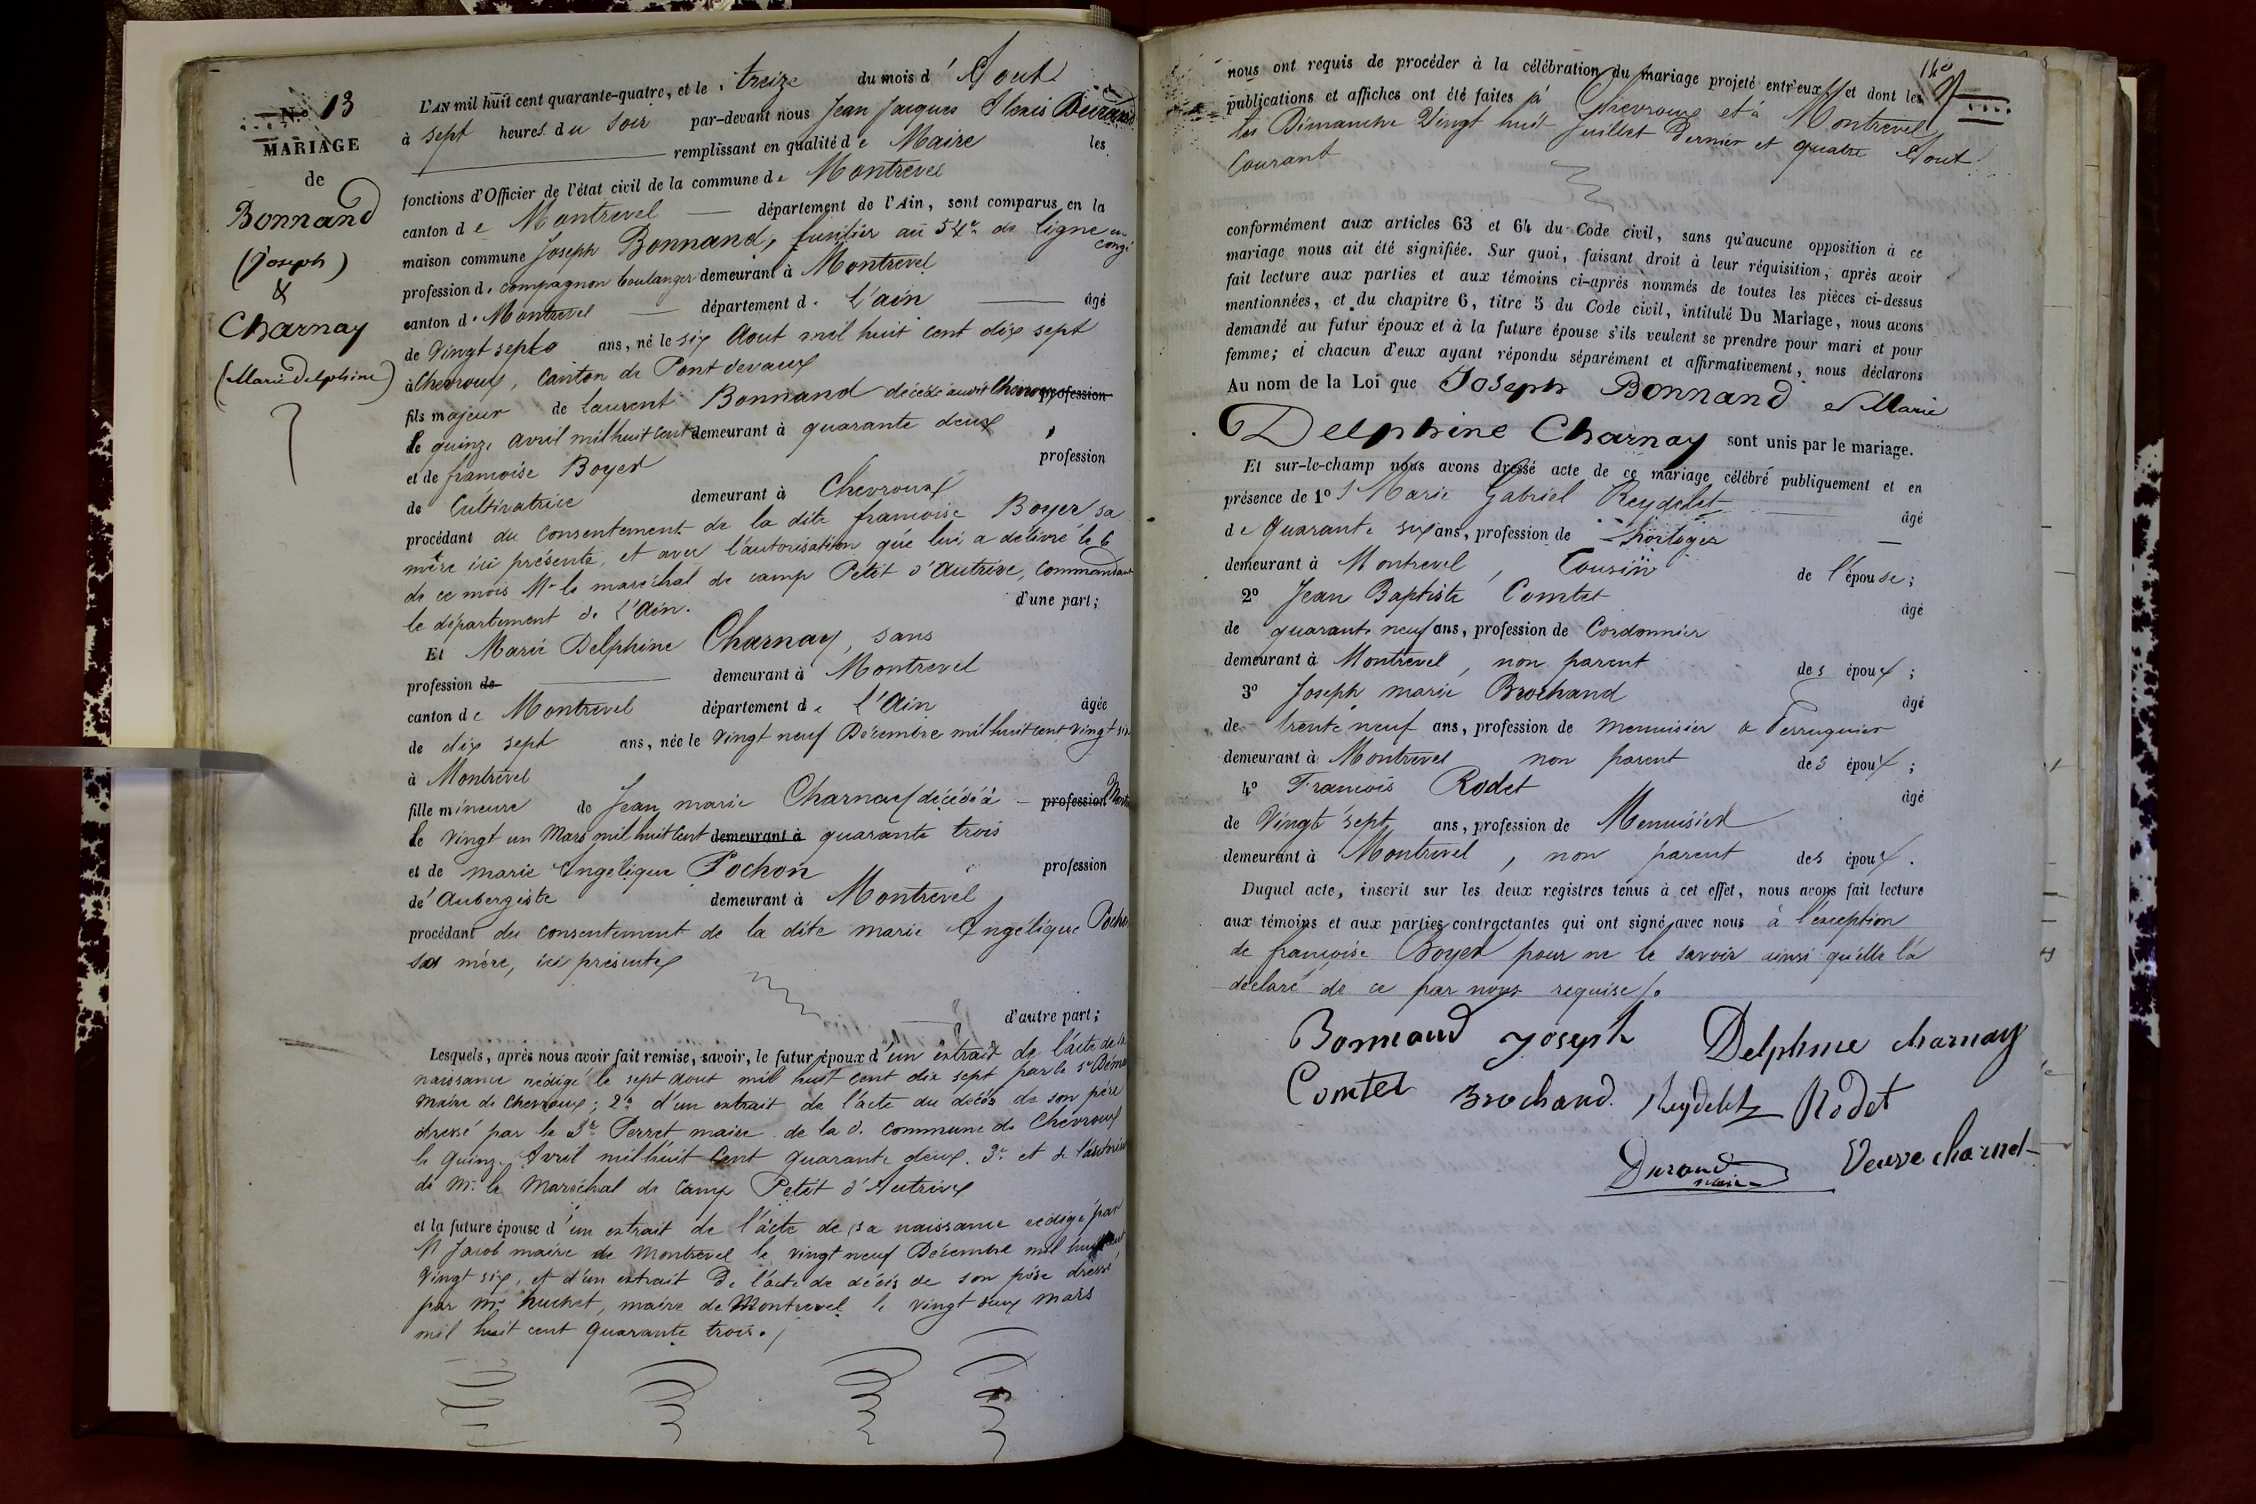 N.o 13
MARIAGE
de
Bonnand
(Joseph)
&
Charnay
(Marie Delphine)
L'AN mil huit cent quarante-quatre, et le treize du mois d'Aout
à sept heures du Soir par-devant nous Jean Jacques Durand
remplissant en qualité de Maire les
fonctions d'Officier de l'état civil de la commune de Montrevel
canton de Montrevel département de l'Ain, sont comparus en la
maison commune Joseph Bonnand, fusilier au 54e de Ligne en congé
profession de compagnon boulanger demeurant à Montrevel
canton de Montrevel département de l'ain âgé
de Vingt sept ans, né le six Aout mil huit cent dix sept
à Chevroux, canton de Pont devaux
fils majeur de laurent Bonnand décédé audit Chevroux profession
le quinze avril mil huit cent demeurant à quarante deux
et de françoise Boyer profession
de Cultivatrice demeurant à Chevroux
procédant du consentement de la dite francoise Boyer sa
mère ici présente, et avec l'autorisation que lui a délivré le 6
de ce mois Mr le maréchal de camp Petit d'Autrive, commandant
le département de l'Ain. d'une part;
Et Marie Delphine Charnay, sans
profession de demeurant à Montrevel
canton de Montrevel département de l'Ain âgée
de dix sept ans, née le vingt neuf Décembre mil huit cent vingt six
à Montrevel
fille mineure de Jean marie Charnay décédé à profession
le vingt un Mars mil huit cent demeurant à quarante trois
et de marie Angélique Pochon profession
de Aubergiste demeurant à Montrevel
procédant du consentement de la dite marie Angélique Pochon
sa mère, ici présente
d'autre part;
Lesquels, après nous avoir fait remise, savoir, le futur époux d'un extrait de l'acte de sa
naissance rédigé le sept Aout mil huit cent dix sept par le sr
maire de Chevroux; 2o d'un extrait de l'acte du décès de son père
dressé par le Sr Perret maire de la d. commune de Chevroux
le quinze Avril mil huit Cent quarante deux. 3o et de l'autorisation
de Mr le Maréchal de Camp Petit d'Autrive
et la future épouse d'un extrait de l'acte de sa naissance rédigé par
M Jacob maire de Montrevel le vingt neuf Décembre mil huit cent
vingt six, et d'un extrait de l'acte de décès de son père dressé
par Mr huchet, maire de Montrevel le vingt deux mars
mil huit cent quarante trois.
nous ont requis de procéder à la célébration du mariage projeté entr'eux, et dont les
publications et affiches ont été faites à Chevroux et à Montrevel
les Dimanche Vingt huit Juillet Dernier et quatre Aout
Courant
conformément aux articles 63 et 64 du Code civil, sans qu'aucune opposition à ce
mariage nous ait été signifiée. Sur quoi, faisant droit à leur réquisition, après avoir
fait lecture aux parties et aux témoins ci-après nommés de toutes les pièces ci-dessus
mentionnées, et du chapitre 6, titre 5 du Code civil, intitulé Du Mariage, nous avons
demandé au futur époux et à la future épouse s'ils veulent se prendre pour mari et pour
femme; et chacun d'eux ayant répondu séparément et affirmativement, nous déclarons
Au nom de la Loi que Joseph Bonnand et Marie
Delphine Charnay sont unis par le mariage.
Et sur-le-champ nous avons dressé acte de ce mariage célébré publiquement et en
présence de 1o S Marie Gabriel Reydelet âgé
de quarante six ans, profession de horloger
demeurant à Montrevel, Cousin de l'épouse;
2o Jean Baptiste Comtet âgé
de quarante neuf ans, profession de Cordonnier
demeurant à Montrevel, non parent des époux;
3o Joseph marie Brochand âgé
de trente neuf ans, profession de menuisier & Perruquier
demeurant à Montrevel non parent des époux;
4o Francois Rodet âgé
de Vingt sept ans, profession de Menuisier
demeurant à Montrevel, non parent des époux.
Duquel acte, inscrit sur les deux registres tenus à cet effet, nous avons fait lecture
aux témoins et aux parties contractantes qui ont signé avec nous à l'exception
de françoise Boyer pour ne le savoir ainsi qu'elle l'a
déclaré de ce par nous requise.
Bonnand Joseph Delphine charnay
Comtet Brochand Reydelet Rodet
Durand maire Veuve charnet